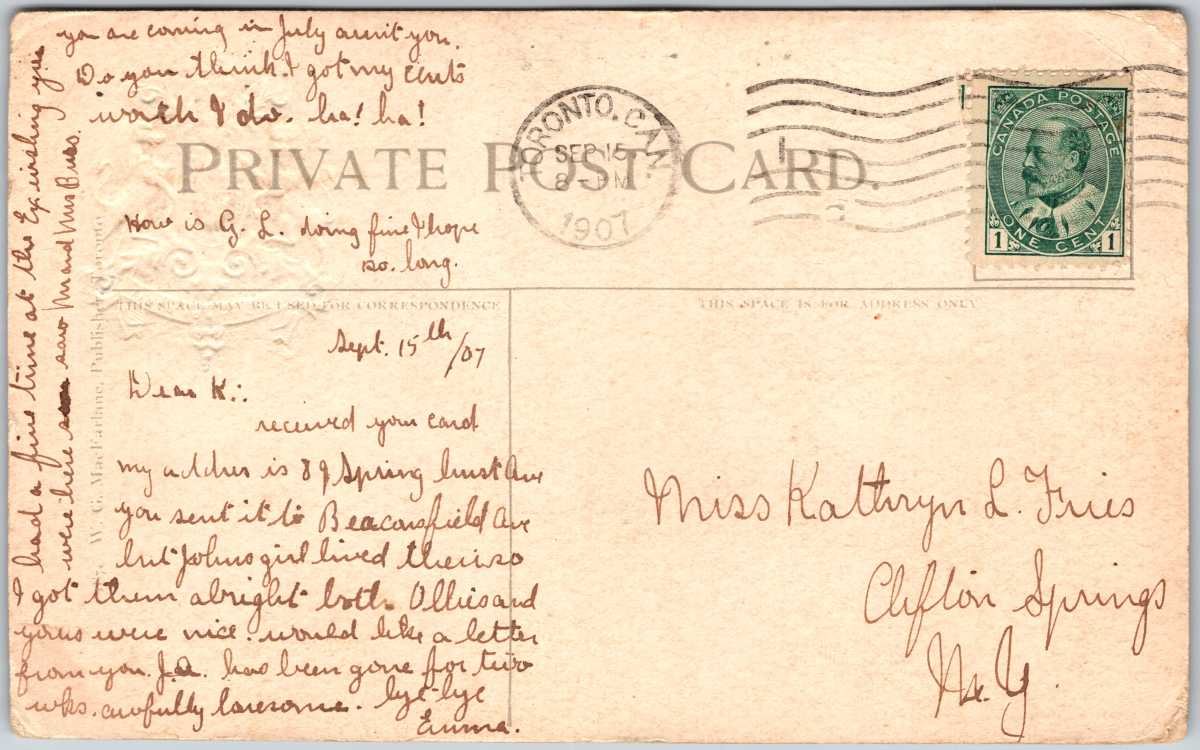 you are coming in July arn't you.
Do you think I got my cents
worth I do. ha! ha!
PRIVATE POST CARD.
TORONTO, CAN.
SEP 15
8-PM
1907
CANADA POSTAGE
ONE CENT
1 1
How is G. L. doing fine I hope
so long.
THIS SPACE MAY BE USED FOR CORRESPONDENCE
THIS SPACE IS FOR ADDRESS ONLY
Sept. 15th/07
Dear K:.
received your card
my address is 89 Spring hurst Ave
you sent it to Beaconsfield Ave
but Johns girl lived there so
I got them alright both Ollies and
yours were nice. would like a letter
from you. J.A. has been gone for two
wks. awfully lonesome. bye-bye
Emma.
I had a fine time at the Ex. wishing you
were here saw Mr and Mrs
W. G. MacFarlane, Publisher, Toronto
Miss Kathryn L. Fries
Clifton Springs
N. Y.